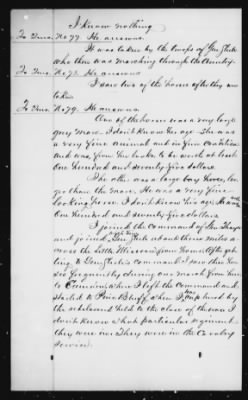 I know nothing
To Item. No. 77. He answers
It was taken by the troops of Gen. Steele
who was marching through the Country.
To Item. No. 78. He answers
I saw two of the horses after they were
taken.
To Item. No. 79. He answers
One of the horses was a very large
grey mare. I don't know her age. She was
a very fine animal and in fine condition
and was, from her looks to be worth at least
One hundred and seventy five dollars.
The other was a large bay horse, lar-
ger than the mare. He was a very fine
looking horse. I don't know his age. He was
One hundred and seventy five dollars.
I joined the command of Gen. Thayer
and joined Gen. Steele about three miles a-
cross the Little Missouri
to Gen. Steele's command. I saw them hor-
ses frequently during our march from here
to Camden, where I left the command and
started to Pine Bluff, when I was captured by
the rebels and held to the close of the war. I
don't know what particular regiment
they were in. They were in the Cavalry
service.